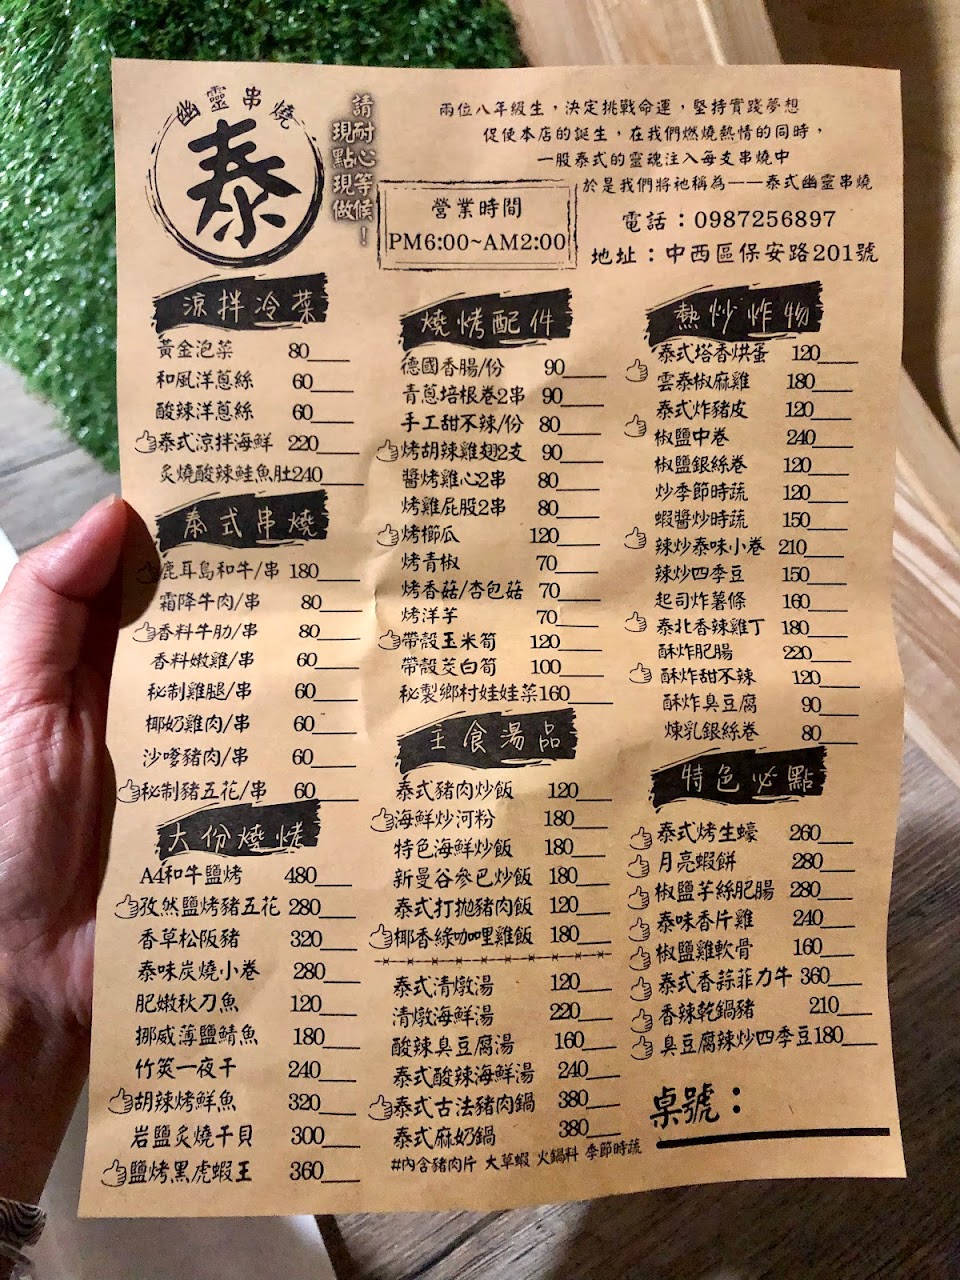 幽靈串燒
泰
請耐心等候！
現點現做
兩位八年級生，決定挑戰命運，堅持實踐夢想
促使本店的誕生，在我們燃燒熱情的同時，
一股泰式的靈魂注入每支串燒中
於是我們將祂稱為——泰式幽靈串燒
營業時間
PM6:00~AM2:00
電話：0987256897
地址：中西區保安路201號
涼拌冷菜
黃金泡菜 80
和風洋蔥絲 60
酸辣洋蔥絲 60
泰式涼拌海鮮 220
炙燒酸辣鮭魚肚240
泰式串燒
鹿耳島和牛/串 180
霜降牛肉/串 80
香料牛肋/串 80
香料嫩雞/串 60
秘制雞腿/串 60
椰奶雞肉/串 60
沙嗲豬肉/串 60
秘制豬五花/串 60
大份燒烤
A4和牛鹽烤 480
孜然鹽烤豬五花 280
香草松阪豬 320
泰味炭燒小卷 280
肥嫩秋刀魚 120
挪威薄鹽鯖魚 180
竹筴一夜干 240
胡辣烤鮮魚 320
岩鹽炙燒干貝 300
鹽烤黑虎蝦王 360
燒烤配件
德國香腸/份 90
青蔥培根卷2串 90
手工甜不辣/份 80
烤胡辣雞翅2支 90
醬烤雞心2串 80
烤雞屁股2串 80
烤櫛瓜 120
烤青椒 70
烤香菇/杏包菇 70
烤洋芋 70
帶殼玉米筍 120
帶殼茭白筍 100
秘製鄉村娃娃菜160
主食湯品
泰式豬肉炒飯 120
海鮮炒河粉 180
特色海鮮炒飯 180
新曼谷參巴炒飯 180
泰式打拋豬肉飯 120
椰香綠咖哩雞飯 180
泰式清燉湯 120
清燉海鮮湯 220
酸辣臭豆腐湯 160
泰式酸辣海鮮湯 240
泰式古法豬肉鍋 380
泰式麻奶鍋 380
#內含豬肉片 大草蝦 火鍋料 季節時蔬
熱炒炸物
泰式塔香烘蛋 120
雲泰椒麻雞 180
泰式炸豬皮 120
椒鹽中卷 240
椒鹽銀絲卷 120
炒季節時蔬 120
蝦醬炒時蔬 150
辣炒泰味小卷 210
辣炒四季豆 150
起司炸薯條 160
泰北香辣雞丁 180
酥炸肥腸 220
酥炸甜不辣 120
酥炸臭豆腐 90
煉乳銀絲卷 80
特色必點
泰式烤生蠔 260
月亮蝦餅 280
椒鹽芋絲肥腸 280
泰味香片雞 240
椒鹽雞軟骨 160
泰式香蒜菲力牛 360
香辣乾鍋豬 210
臭豆腐辣炒四季豆180
桌號：